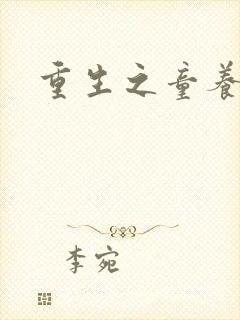 重生之童养
李宛